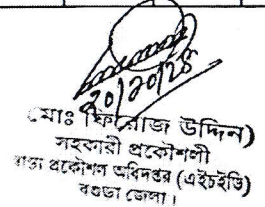 ২০/১০/২৪
মোঃ ফিরোজ উদ্দিন)
সহকারী প্রকৌশলী
প্রকৌশল অধিদপ্তর (এইচইডি)
বগুড়া জেলা।